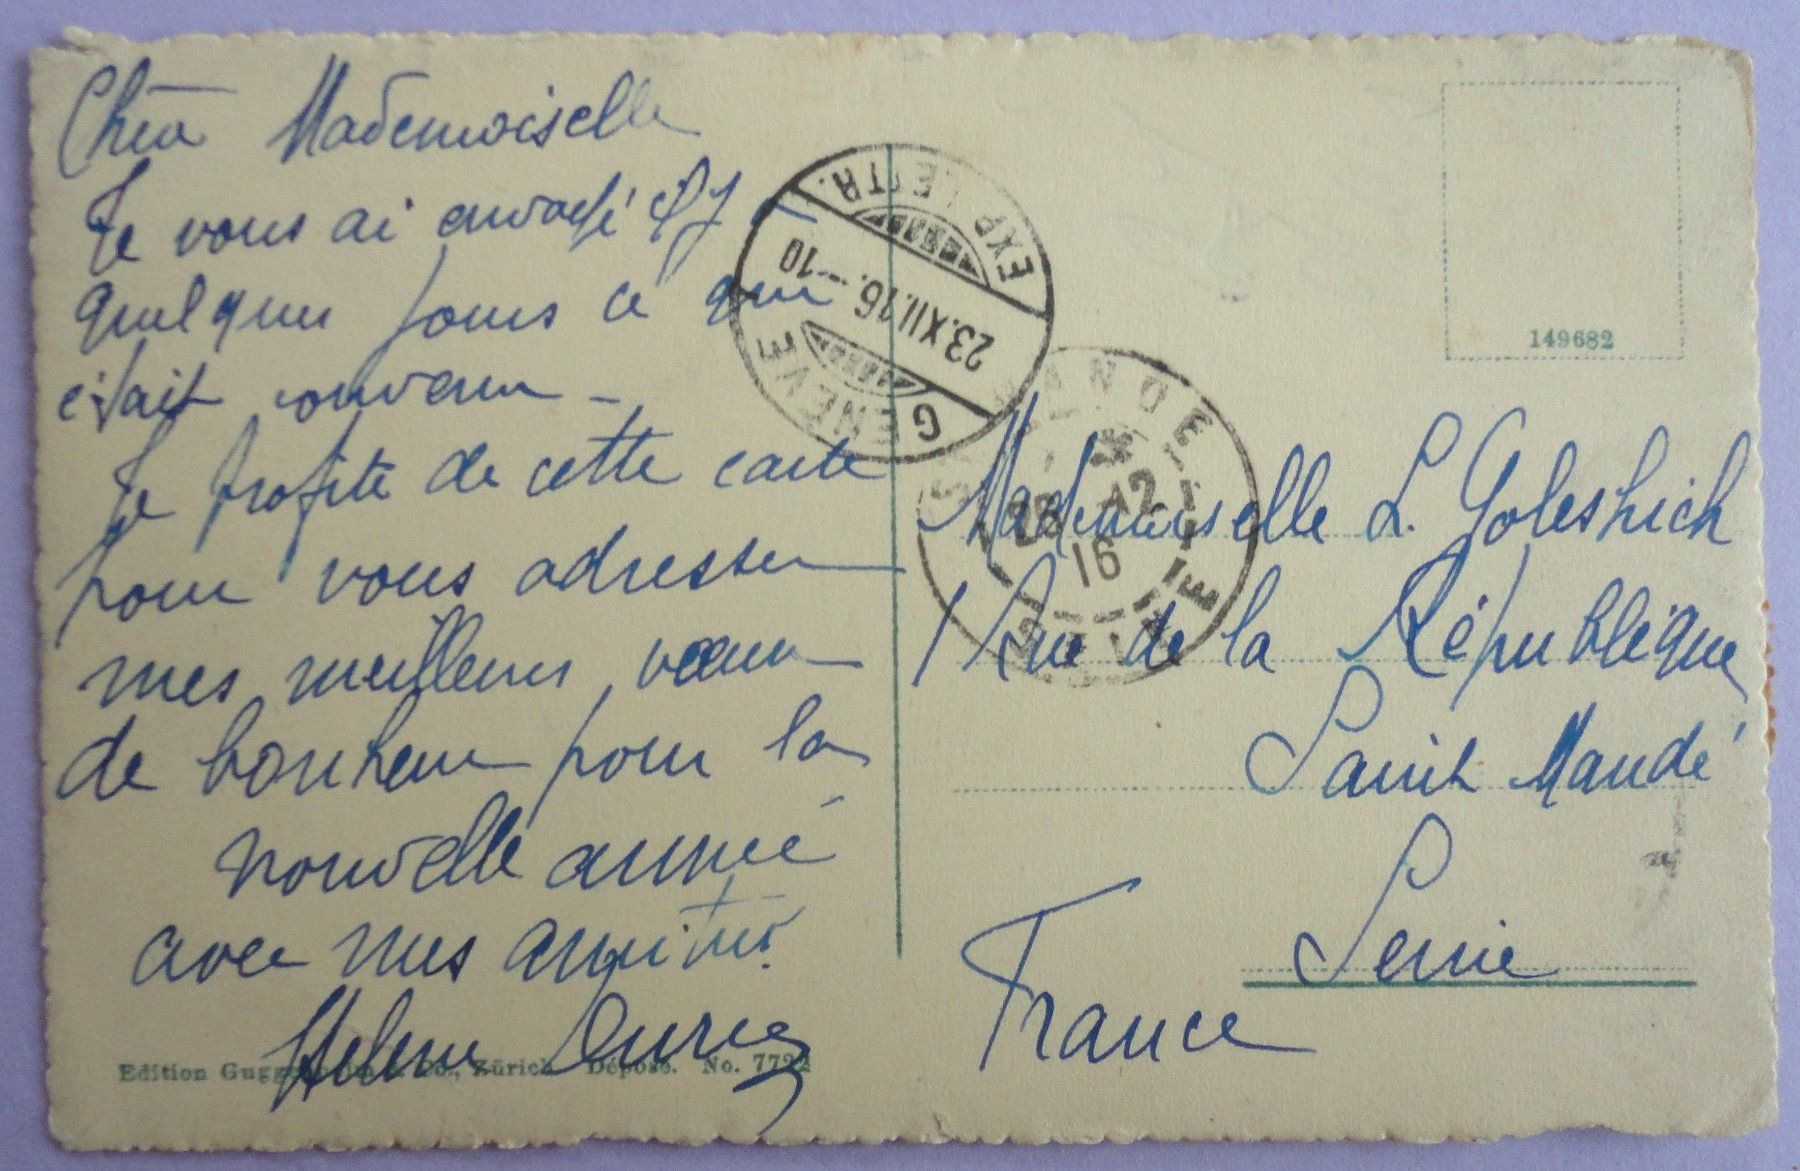 Chère Mademoiselle
Je vous ai envoyé il y
quelques jours ce qui
était convenu -
Je profite de cette carte
pour vous adresser
mes meilleurs vœux
de bonheur pour la
nouvelle année
avec mes amitiés.
Helene
Edition Guggenheim & Co., Zürich Déposé. No. 7722
EXP. LETTR.
23.XII.16.–10
GENÈVE
149682
ST MANDÉ
28 12
16
SEINE
Mademoiselle L. Goleshich
1 Rue de la République
Saint Mandé
Seine
France